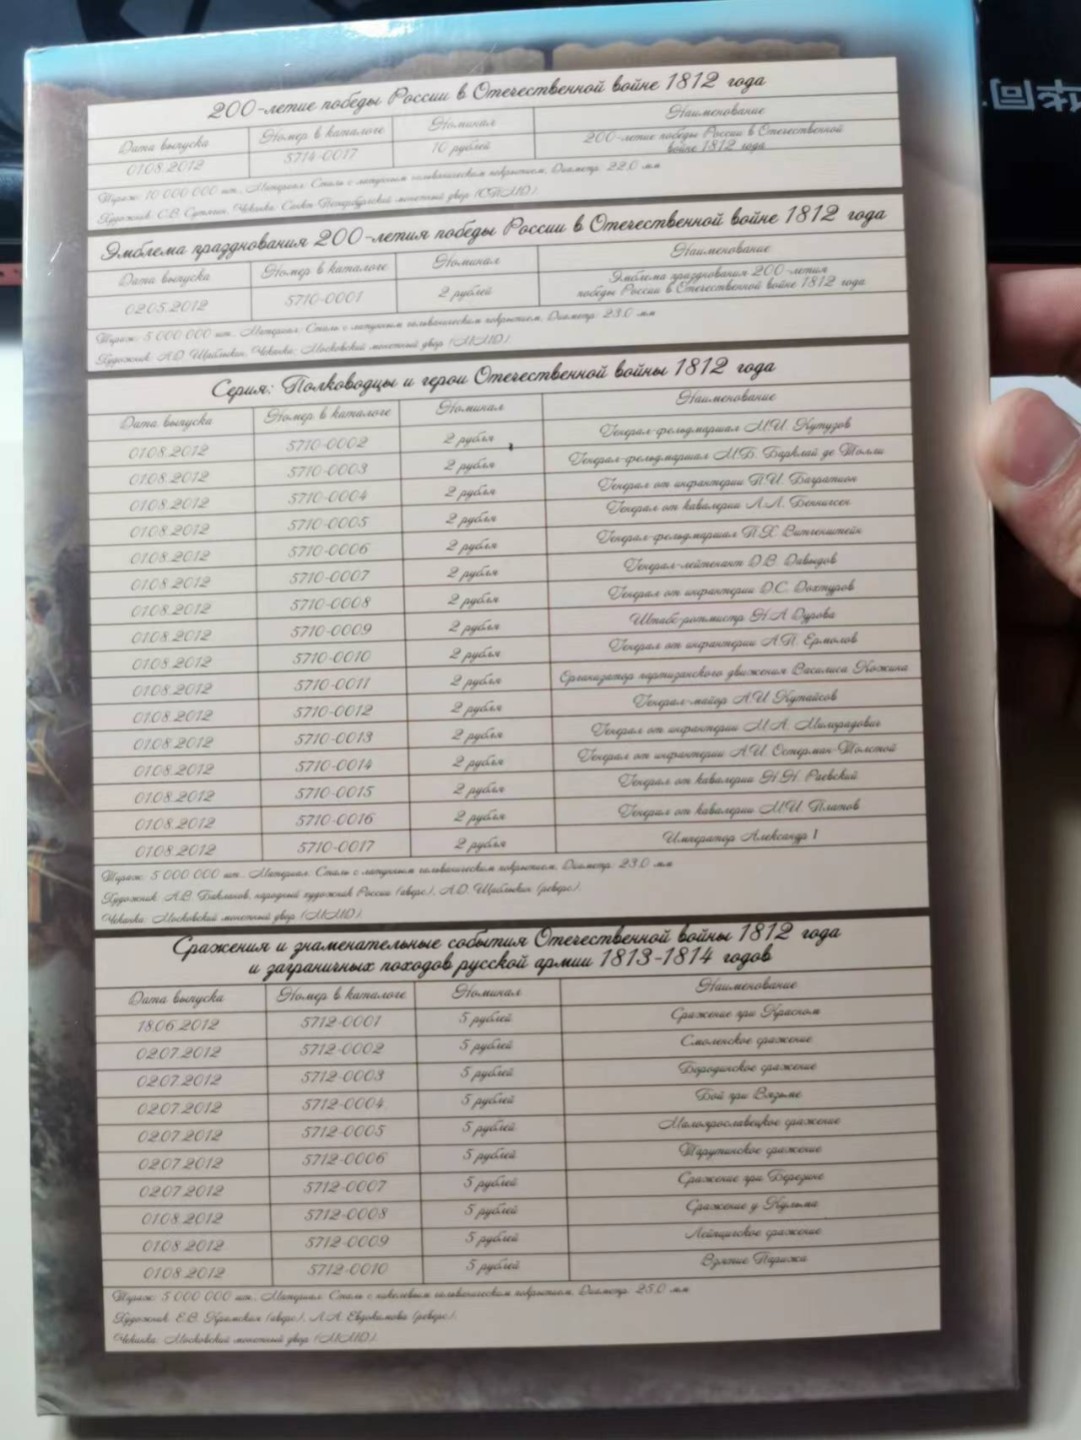 200-летие победы России в Отечественной войне 1812 года
Дата выпуска Номер в каталоге Номинал Наименование
01.08.2012 5714-0017 10 рублей 200-летие победы России в Отечественной
войне 1812 года
Тираж: 10 000 000 шт., Материал: Сталь с латунным гальваническим покрытием, Диаметр: 22,0 мм
Художник: С.В. Сутягин, Чеканка: Санкт-Петербургский монетный двор (СПМД).
Эмблема празднования 200-летия победы России в Отечественной войне 1812 года
Дата выпуска Номер в каталоге Номинал Наименование
02.05.2012 5710-0001 2 рублей Эмблема празднования 200-летия
победы России в Отечественной войне 1812 года
Тираж: 5 000 000 шт., Материал: Сталь с латунным гальваническим покрытием, Диаметр: 23,0 мм
Художник: А.Д. Щаблыкин, Чеканка: Московский монетный двор (ММД).
Серия: Полководцы и герои Отечественной войны 1812 года
Дата выпуска Номер в каталоге Номинал Наименование
01.08.2012 5710-0002 2 рубля Генерал-фельдмаршал М.И. Кутузов
01.08.2012 5710-0003 2 рубля Генерал-фельдмаршал М.Б. Барклай де Толли
01.08.2012 5710-0004 2 рубля Генерал от инфантерии П.И. Багратион
01.08.2012 5710-0005 2 рубля Генерал от кавалерии Л.Л. Беннигсен
01.08.2012 5710-0006 2 рубля Генерал-фельдмаршал П.Х. Витгенштейн
01.08.2012 5710-0007 2 рубля Генерал-лейтенант Д.В. Давыдов
01.08.2012 5710-0008 2 рубля Генерал от инфантерии Д.С. Дохтуров
01.08.2012 5710-0009 2 рубля Штабс-ротмистр Н.А. Дурова
01.08.2012 5710-0010 2 рубля Генерал от инфантерии А.П. Ермолов
01.08.2012 5710-0011 2 рубля Организатор партизанского движения Василиса Кожина
01.08.2012 5710-0012 2 рубля Генерал-майор А.И. Кутайсов
01.08.2012 5710-0013 2 рубля Генерал от инфантерии М.А. Милорадович
01.08.2012 5710-0014 2 рубля Генерал от инфантерии А.И. Остерман-Толстой
01.08.2012 5710-0015 2 рубля Генерал от кавалерии Н.Н. Раевский
01.08.2012 5710-0016 2 рубля Генерал от кавалерии М.И. Платов
01.08.2012 5710-0017 2 рубля Император Александр I
Тираж: 5 000 000 шт., Материал: Сталь с латунным гальваническим покрытием, Диаметр: 23,0 мм
Художник: А.В. Бакланов, народный художник России (аверс), А.Д. Щаблыкин (реверс).
Чеканка: Московский монетный двор (ММД).
Сражения и знаменательные события Отечественной войны 1812 года
и заграничных походов русской армии 1813-1814 годов
Дата выпуска Номер в каталоге Номинал Наименование
18.06.2012 5712-0001 5 рублей Сражение при Красном
02.07.2012 5712-0002 5 рублей Смоленское сражение
02.07.2012 5712-0003 5 рублей Бородинское сражение
02.07.2012 5712-0004 5 рублей Бой при Вязьме
02.07.2012 5712-0005 5 рублей Малоярославецкое сражение
02.07.2012 5712-0006 5 рублей Тарутинское сражение
02.07.2012 5712-0007 5 рублей Сражение при Березине
01.08.2012 5712-0008 5 рублей Сражение у Кульма
01.08.2012 5712-0009 5 рублей Лейпцигское сражение
01.08.2012 5712-0010 5 рублей Взятие Парижа
Тираж: 5 000 000 шт., Материал: Сталь с никелевым гальваническим покрытием, Диаметр: 25,0 мм
Художник: Е.В. Крамская (аверс), Л.А. Евдокимова (реверс).
Чеканка: Московский монетный двор (ММД).